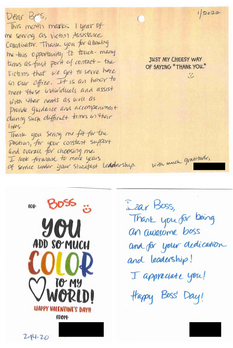 Dear Boss,
1/5/2022
This month marks 1 year of
me serving as Victim Assistance
Coordinator. Thank you for allowing
me this opportunity to touch - many
times as first point of contact - the
victims that we get to serve here
in our office. It is an honor to
meet these individuals and assist
with their needs as well as
provide guidance and accompaniment
during such difficult times in their
lives.
Thank you seeing me fit for the
position, for your constant support
and overall for choosing me.
I look forward to more years
of service under your steadfast leadership.
With much gratitude,
JUST MY CHEESY WAY
OF SAYING "THANK YOU."
FOR: BOSS
YOU
ADD SO MUCH
COLOR
TO MY
WORLD!
HAPPY VALENTINE'S DAY!
FROM:
2-14-20
Dear Boss,
Thank you for being
an awesome boss
and for your dedication
and leadership!
I appreciate you!
Happy Boss' Day!